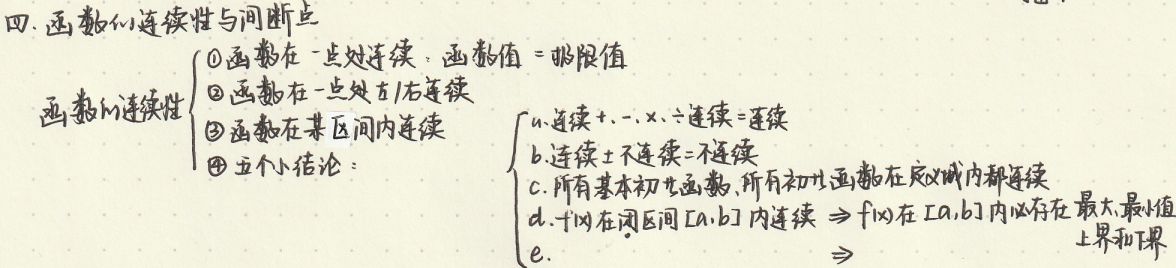 四.函数的连续性与间断点
函数的连续性
①函数在一点处连续:函数值=极限值
②函数在一点处左/右连续
③函数在某区间内连续
④五个小结论:
a.连续+.-.×.÷连续=连续
b.连续±不连续=不连续
c.所有基本初等函数、所有初等函数在定义域内都连续
d.f(x)在闭区间[a,b]内连续 ⇒ f(x)在[a,b]内必存在最大、最小值
上界和下界
e. ⇒